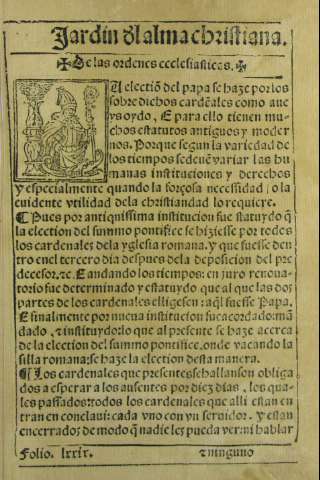 Jardin d'l alma christiana.
✠ De las ordenes ecclesiasticas. ✠
A electiõ del papa se haze por los
sobre dichos cardẽales como aue
ys oydo, E para ello tienen mu-
chos estatutos antiguos y moder
nos. Porque segun la variedad de
los tiempos se deuẽ variar las hu
manas instituciones y derechos
y especialmente quando la forçosa necessidad / o la
euidente vtilidad dela christiandad lo requiere.
¶ Pues por antiquissima institucion fue statuydo q̃
la election del summo pontifice se hiziesse por todos
los cardenales dela yglesia romana. y que fuesse den
tro enel tercero dia despues dela deposicion del pre
decesor. ⁊c. E andando los tiempos: en juro renoua-
torio fue determinado y estatuydo que al que las dos
partes de los cardenales elligesen: aq̃l fuesse Papa.
E finalmente por nueua institucion fue acordado: mã
dado, ⁊ instituydo: lo que al presente se haze acerca
de la election del summo pontifice. onde vacando la
silla romana: se haze la election desta manera.
¶ Los cardenales que presentes se hallan son obliga
dos a esperar a los ausentes por diez dias. los qua-
les passados: todos los cardenales que alli estan en
tran en conclaui: cada vno con vn seruidor. y estan
encerrados: de modo q̃ nadie les pueda ver: ni hablar
Folio. lxxix. ⁊ ninguno